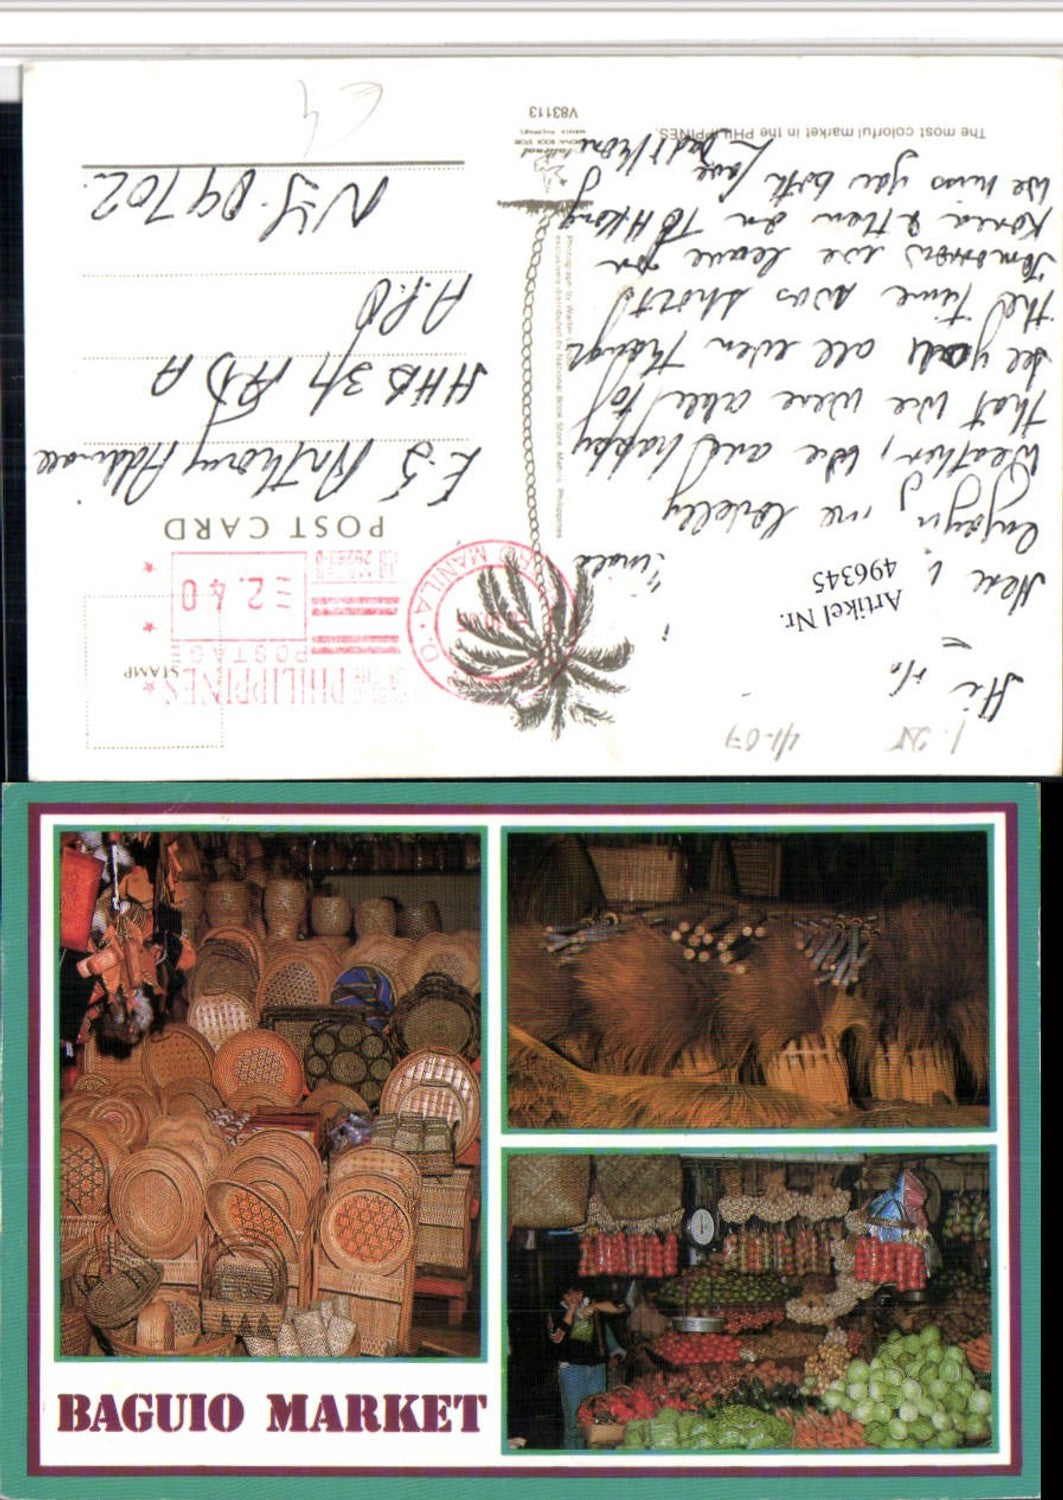 The most colorful market in the PHILIPPINES.
V83113
Hi
Here
enjoying the lovely
Weather, We are happy
that we were able to
see you all even though
the time was short
Tomorrow we leave for
Korea & then on to H Kong
We miss you both love
Dad & Mom
Photograph by Walter
exclusively distributed by National Book Store, Manila, Philippines
STAMP
PHILIPPINES
POSTAGE
2.40
MANILA
POST CARD
E-5 Anthony
HHB 3/1 ADA
A.P.O
N-Y. 09702
Artikel Nr.
496345
BAGUIO MARKET